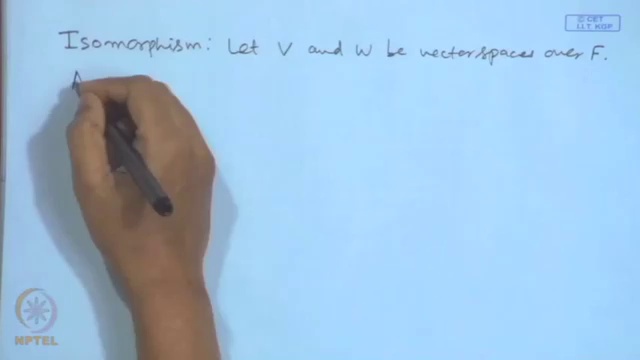 © CET
I.I.T. KGP
Isomorphism: Let V and W be vector spaces over F.
A
NPTEL